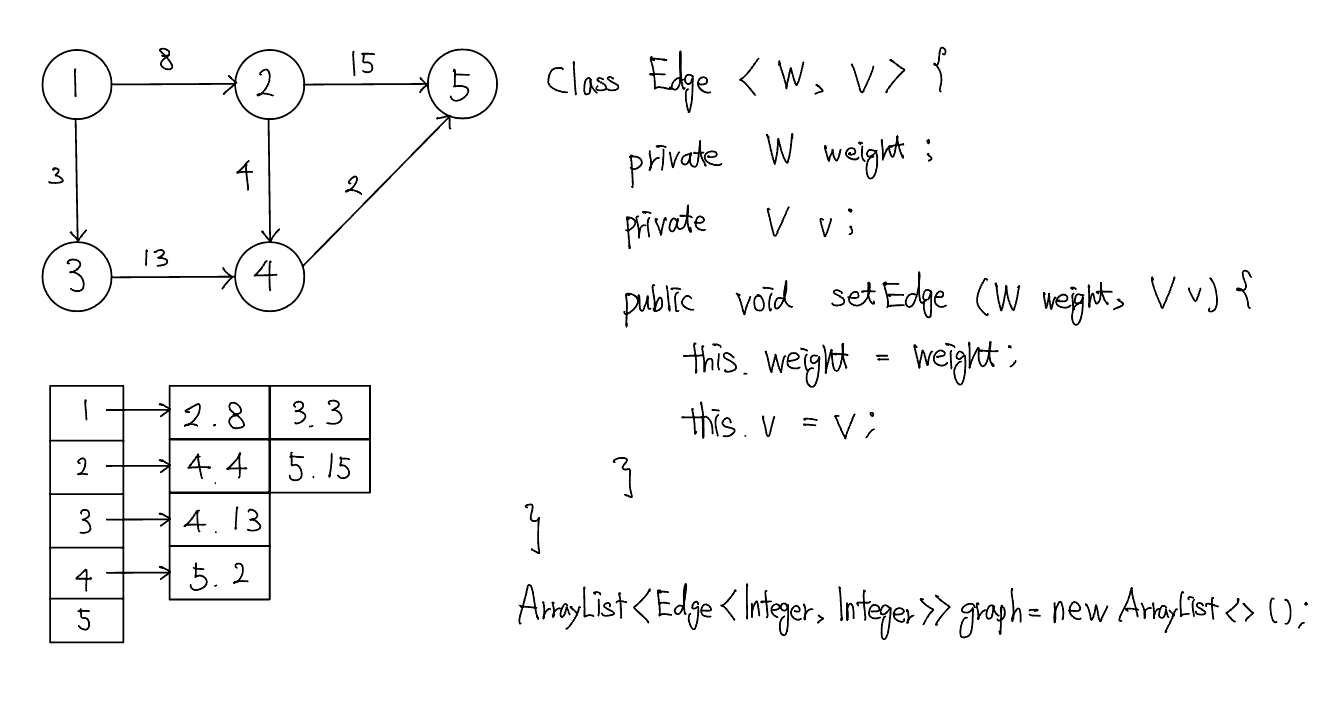 1 8 2 15 5
3 4 2
3 13 4
1 2.8 3.3
2 4.4 5.15
3 4.13
4 5.2
5
Class Edge <W, V> {
private W weight;
private V v;
public void setEdge (W weight, V v) {
this.weight = weight;
this.v = v;
}
}
ArrayList<Edge<Integer, Integer>> graph = new ArrayList<>();